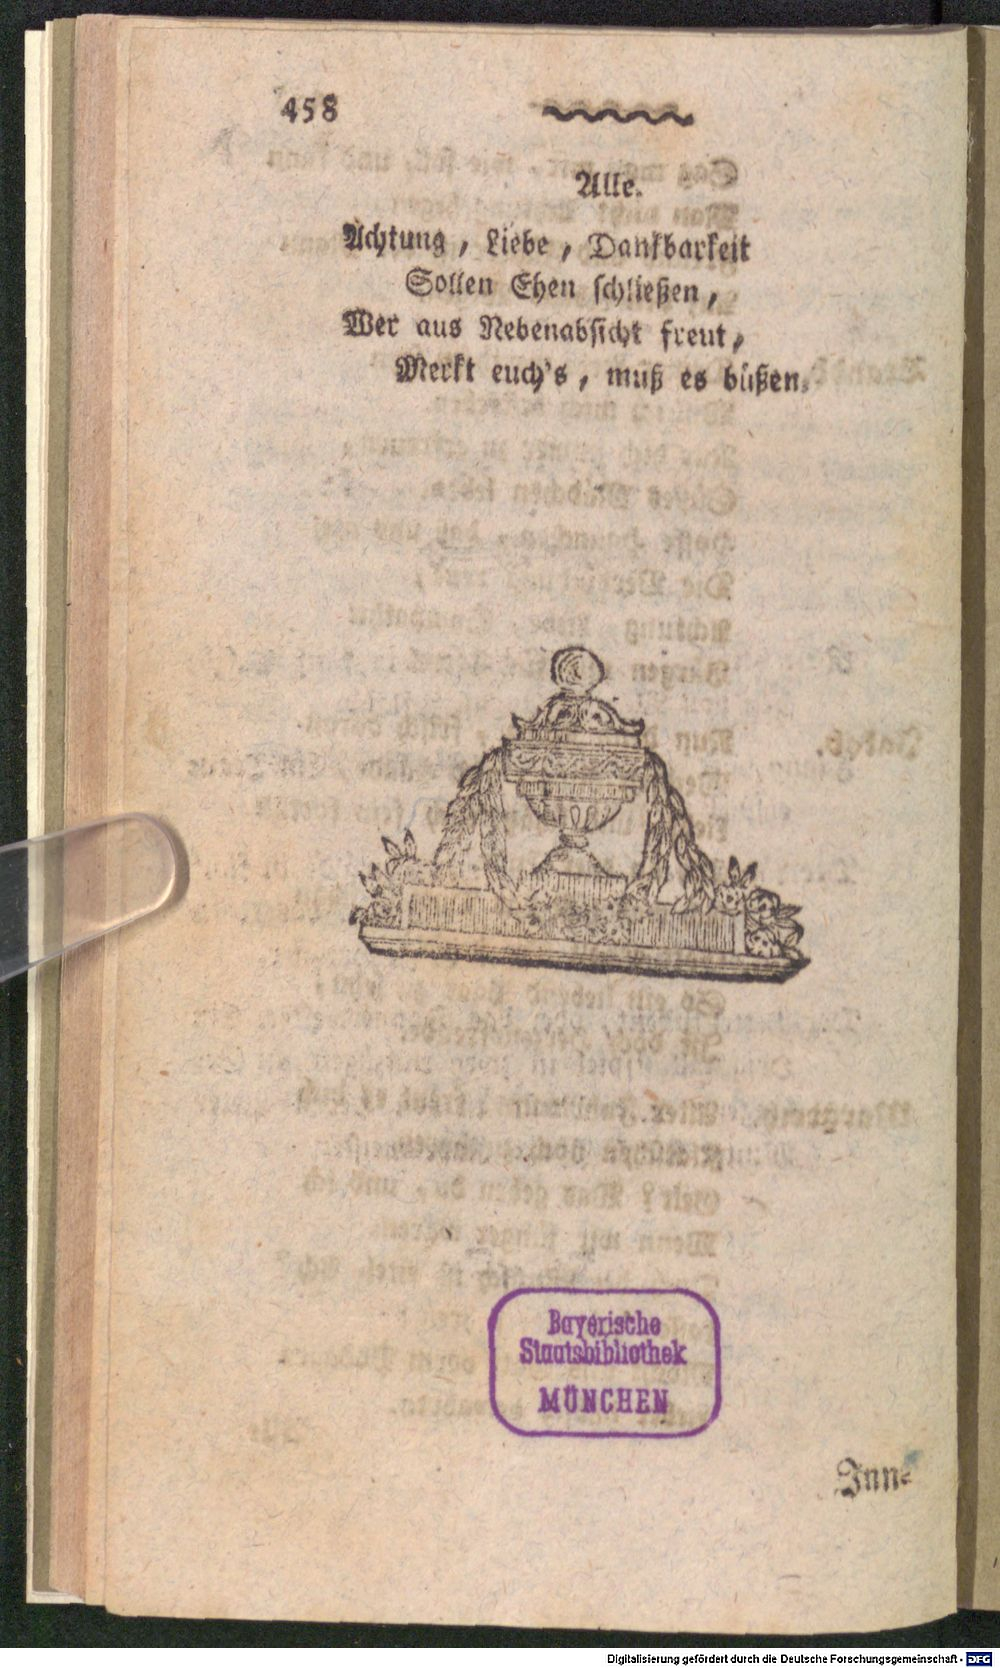 458
Alle.
Achtung, Liebe, Dankbarkeit
Sollen Ehen schließen,
Wer aus Nebenabsicht freut,
Merkt euch's, muß es büßen.
Bayerische
Staatsbibliothek
MÜNCHEN
Inn-
Digitalisierung gefördert durch die Deutsche Forschungsgemeinschaft - DFG